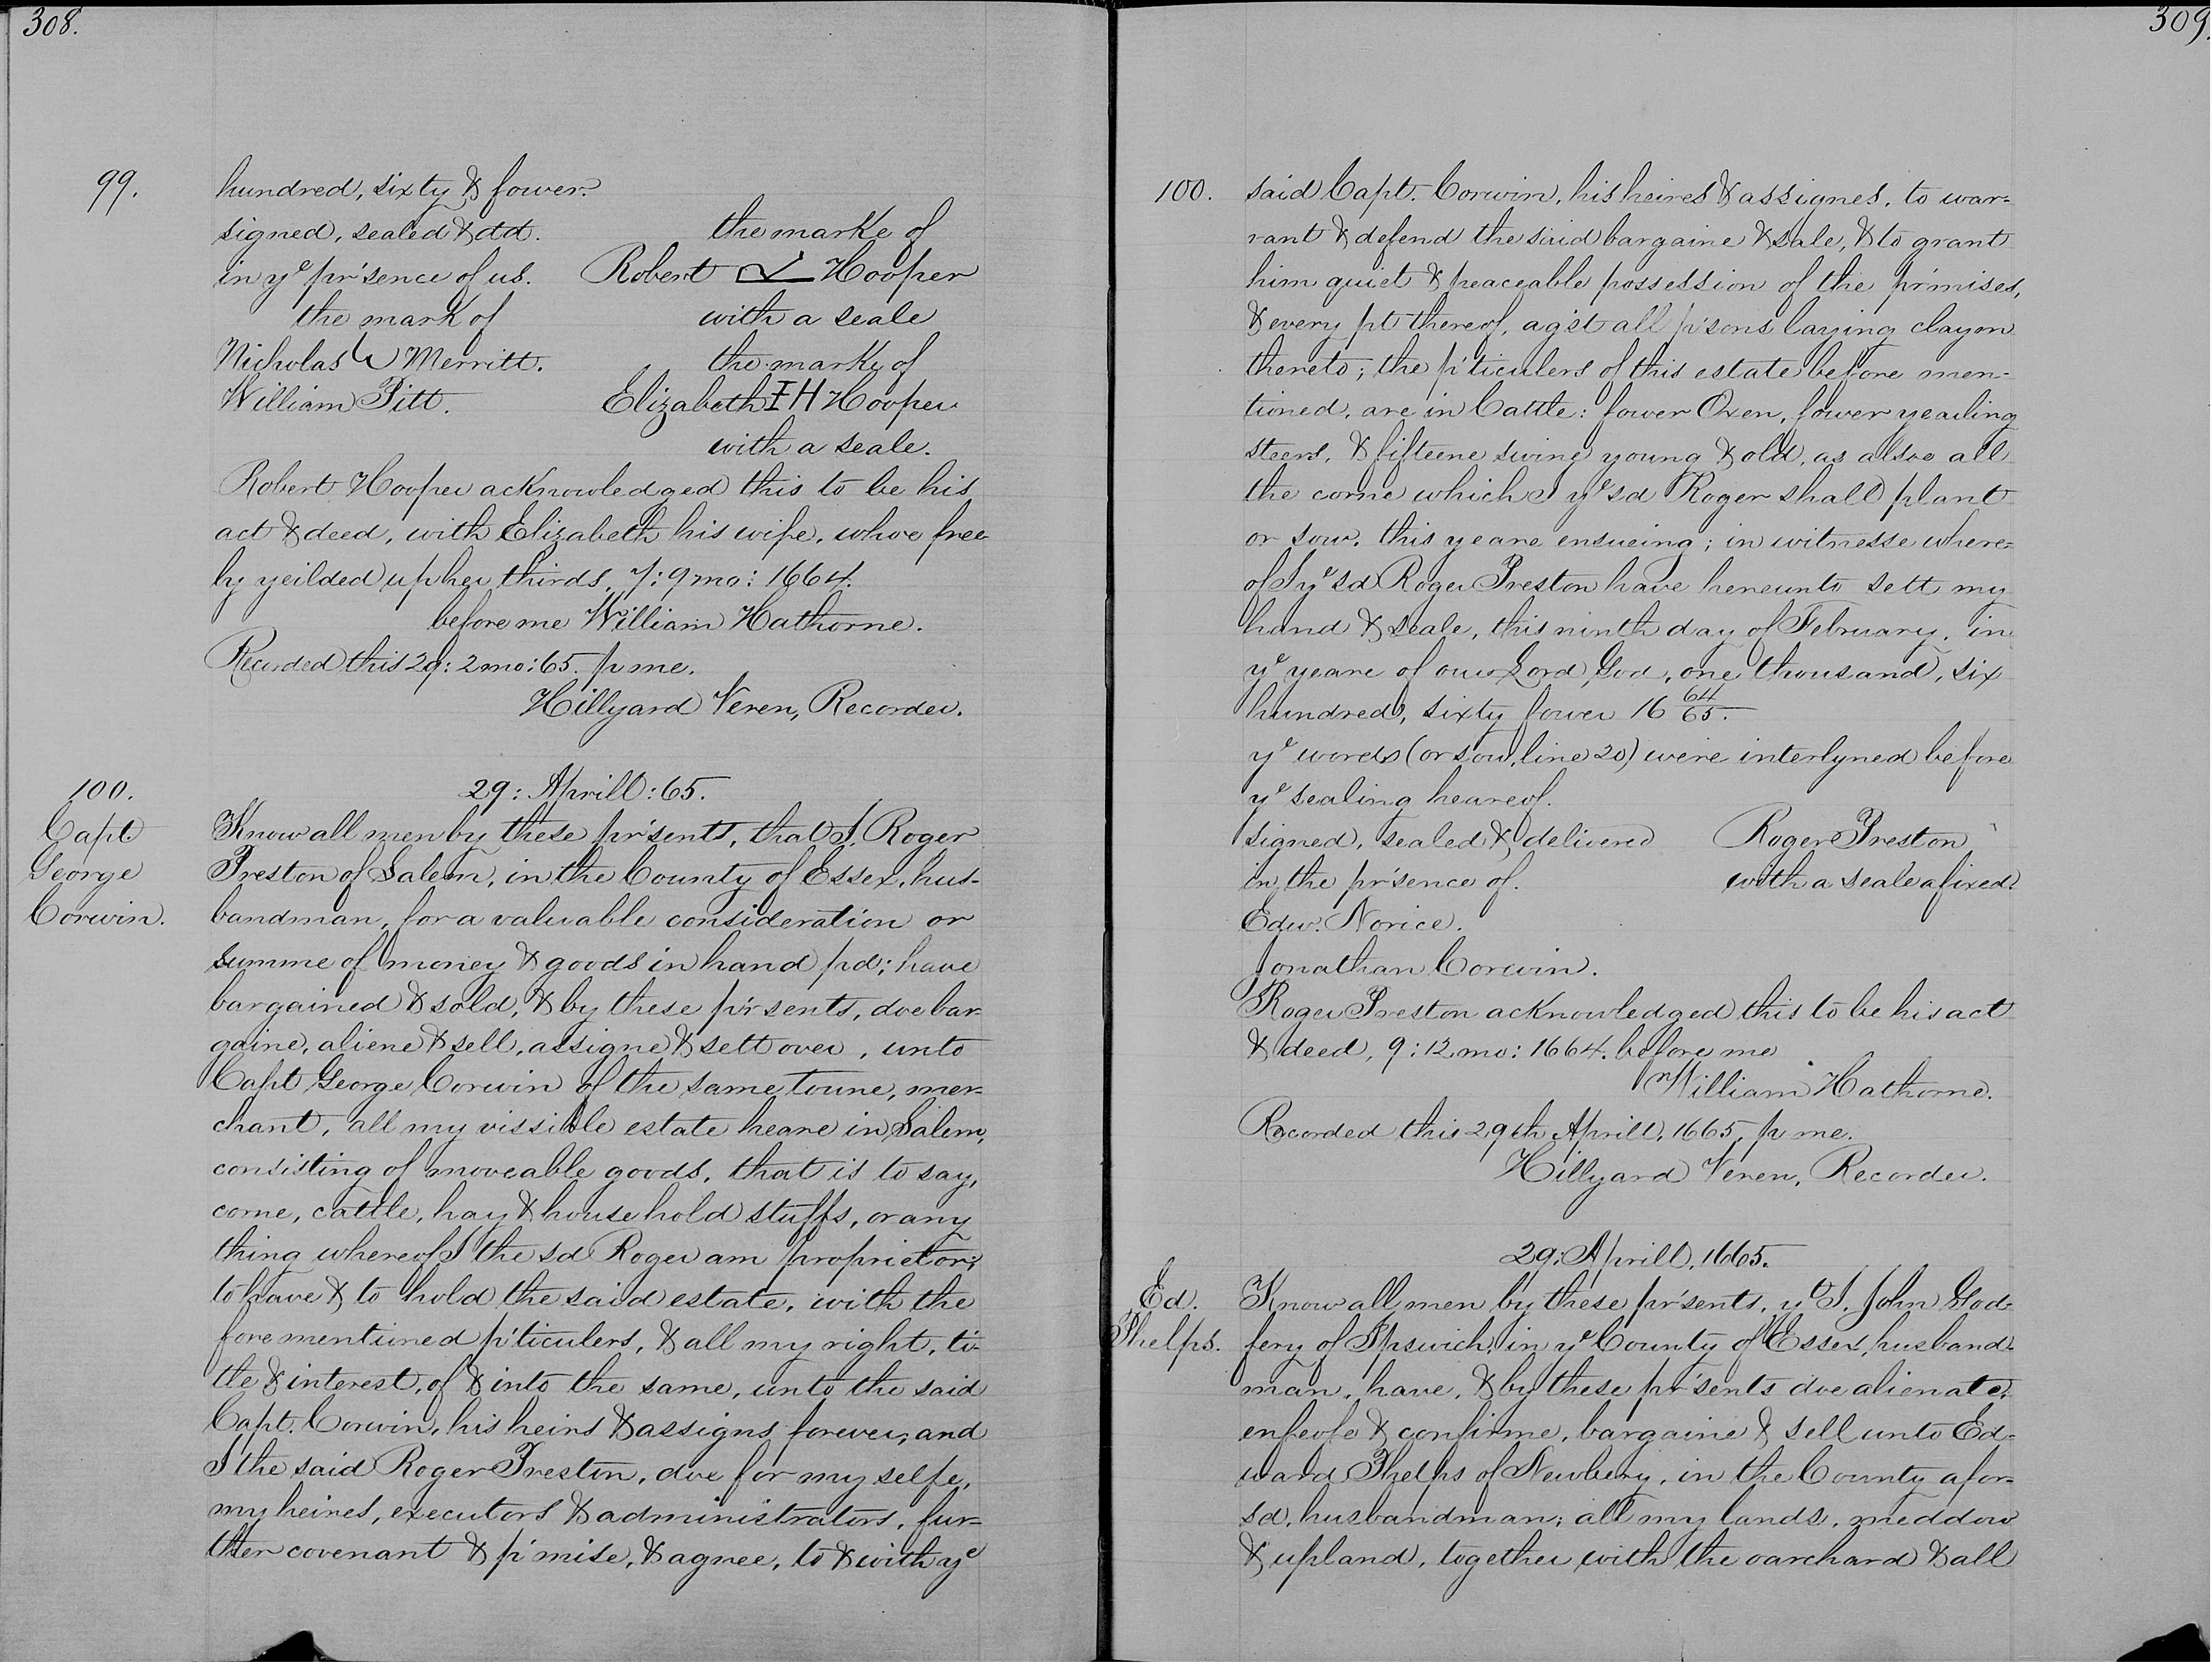 308.
99.
hundred, sixty & fower.
signed, sealed & dd. the marke of
in yᵉ pr'sence of us. Robert Hooper
the mark of with a seale
Nicholas Merritt. the marke of
William Pitt. Elizabeth IH Hooper
with a seale.
Robert Hooper acknowledged this to be his
act & deed, with Elizabeth his wife, whoe free-
ly yeilded up her thirds, 7: 9 mo: 1664.
before me William Hathorne.
Recorded this 29: 2 mo: 65. p me.
Hillyard Veren, Recorder.
100. 29: Aprill: 65.
Capt.
George
Corwin.
Know all men by these pr'sents, that I, Roger
Preston of Salem, in the County of Essex, hus-
bandman, for a valuable consideration or
summe of money & goods in hand pd; have
bargained & sold, & by these pr'sents, doe bar-
gaine, aliene & sell, assigne & sett over, unto
Capt George Corwin of the same toune, mer-
chant, all my vissible estate heare in Salem,
consisting of moveable goods, that is to say,
corne, cattle, hay & household stuffs, or any
thing whereof I the sd Roger am proprietor;
to have & to hold the said estate, with the
forementioned p'ticulers, & all my right, ti-
tle & interest, of & into the same, unto the said
Capt. Corwin, his heirs & assigns forever, and
I the said Roger Preston, doe for my selfe,
my heires, executors & administrators, fur-
ther covenant & p'mise, & agree, to & with yᵉ
309.
100.
said Capt. Corwin, his heires & assignes, to war-
rant & defend the said bargaine & sale, & to grant
him quiet & peaceable possession of the pr'mises,
& every pt thereof, ag'st all p'sons laying claym
thereto; the p'ticulers of this estate before men-
tioned, are in Cattle: fower Oxen, fower yearling
steers, & fifteene swine young & old, as alsoe all
the corne which I yᵉ sd Roger shall plant
or sow, this yeare ensueing; in witnesse where-
of I yᵉ sd Roger Preston have hereunto sett my
hand & seale, this ninth day of February, in
yᵉ yeare of our Lord God, one thousand, six
hundred, sixty fower 16 64/65.
yᵉ words (or sow, line 20) were interlyned before
yᵉ sealing heareof.
signed, sealed & delivered Roger Preston
in the pr'sence of. with a seale afixed.
Edw. Norice.
Jonathan Corwin.
Roger Preston acknowledged this to be his act
& deed, 9: 12 mo: 1664. before me
William Hathorne.
Recorded this 29th Aprill, 1665, p me.
Hillyard Veren, Recorder.
29: Aprill, 1665.
Ed.
Phelps.
Know all men by these pr'sents, yᵗ I, John God-
fery of Ipswich, in yᵉ County of Essex, husband-
man, have, & by these pr'sents doe alienate,
enfeofe & confirme, bargaine & sell unto Ed-
ward Phelps of Newbery, in the County afor-
sd, husbandman; all my lands, meddow
& upland, together with the oarchard & all